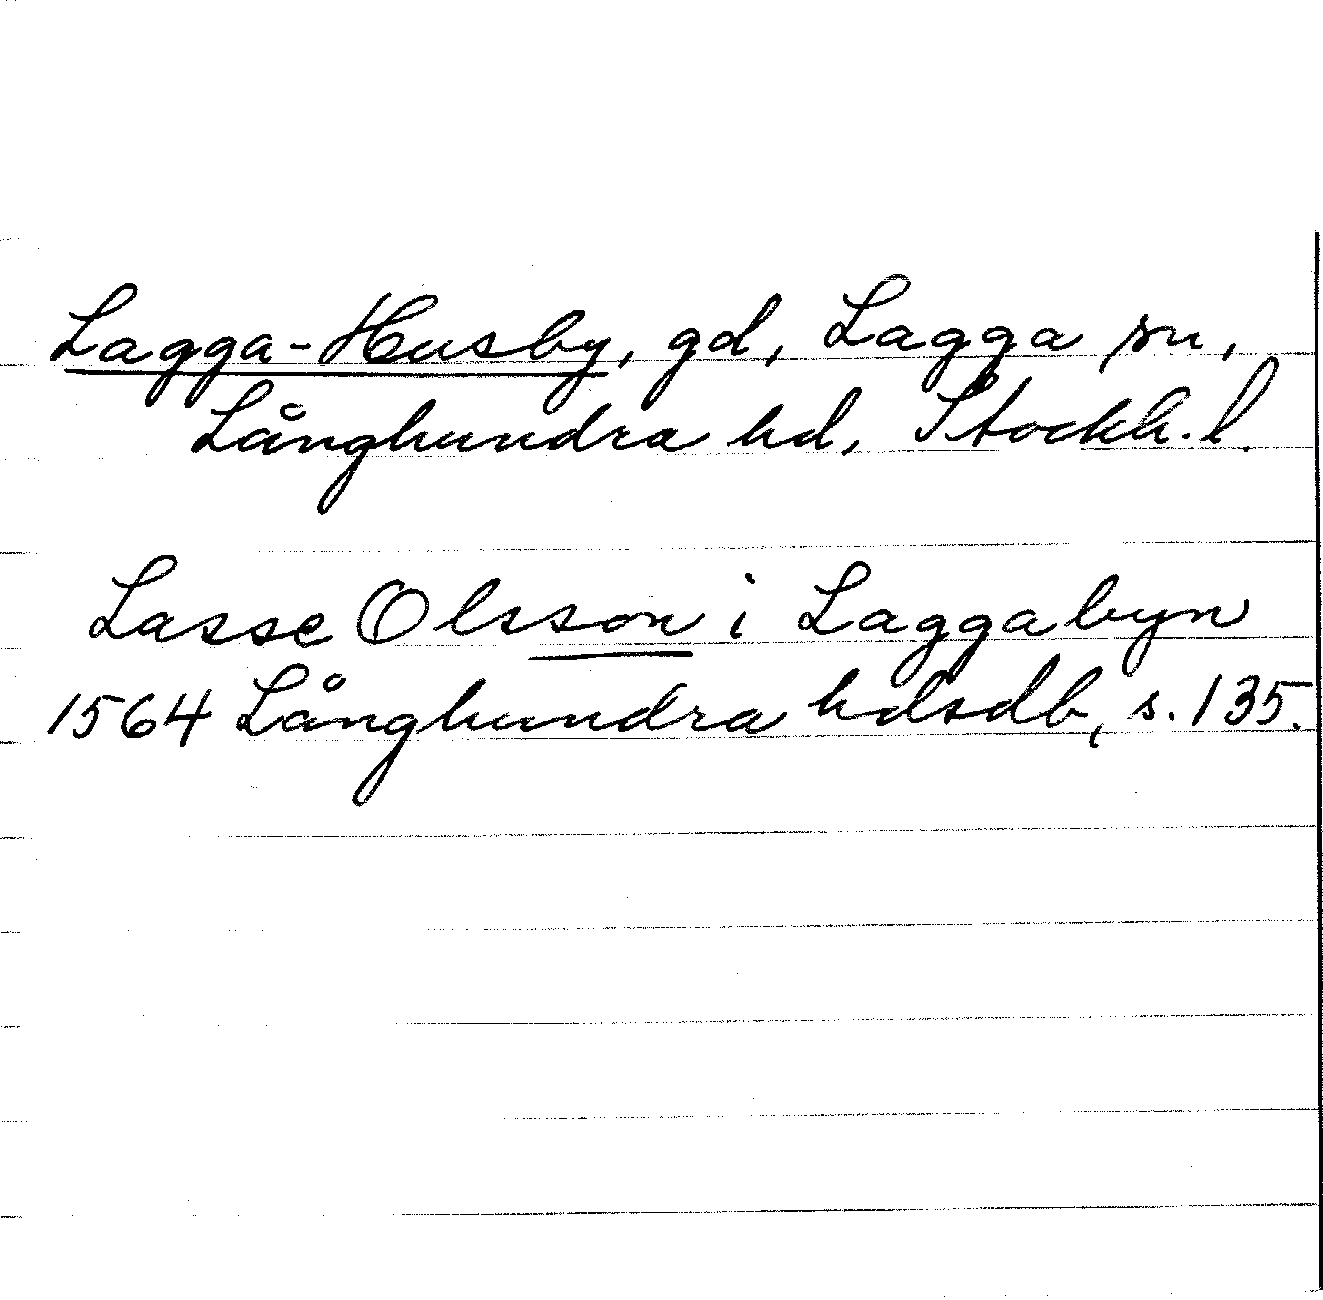 Lagga-Husby, gd, Lagga sn,
Långhundra hd, Stockh. l.
Lasse Olsson i Laggabyn
1564 Långhundra hdsdb, s. 135.